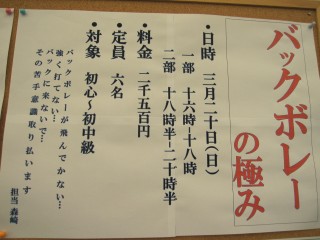 バックボレー
の極み
・日時 三月二十日（日）
一部 十六時ー十八時
二部 十八時半ー二十時半
・料金 二千五百円
・定員 六名
・対象 初心〜初中級
バックボレーが飛んでかない…
強く打てない…
バックに来ないで…
その苦手意識取り払います
担当 森崎